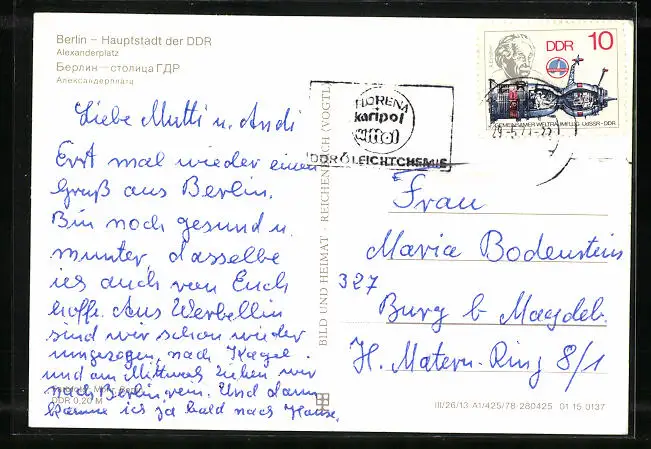 Berlin – Hauptstadt der DDR
Alexanderplatz
Берлин—столица ГДР
Александерплатц
Liebe Mutti u. Andi
Erst mal wieder einen
Gruß aus Berlin.
Bin noch gesund u.
munter, dasselbe
ich auch von Euch
hoffe. Aus Werbellin
sind wir schon wieder
umgezogen, nach Kagel
und am Mittwoch ziehen wir
nach Berlin rein. Und dann
komme ich ja bald nach Hause.
DDR 0,20 M
BILD UND HEIMAT · REICHENBACH (VOGTL)
FLORENA
karipol
DDR LEICHTCHEMIE
DDR 10
GEMEINSAMER WELTRAUMFLUG UdSSR-DDR
Frau
Maria Bodenstein
327
Burg b Magdeb.
H. Matern-Ring 8/1
III/26/13 A1/425/78 280425 01 15 0137